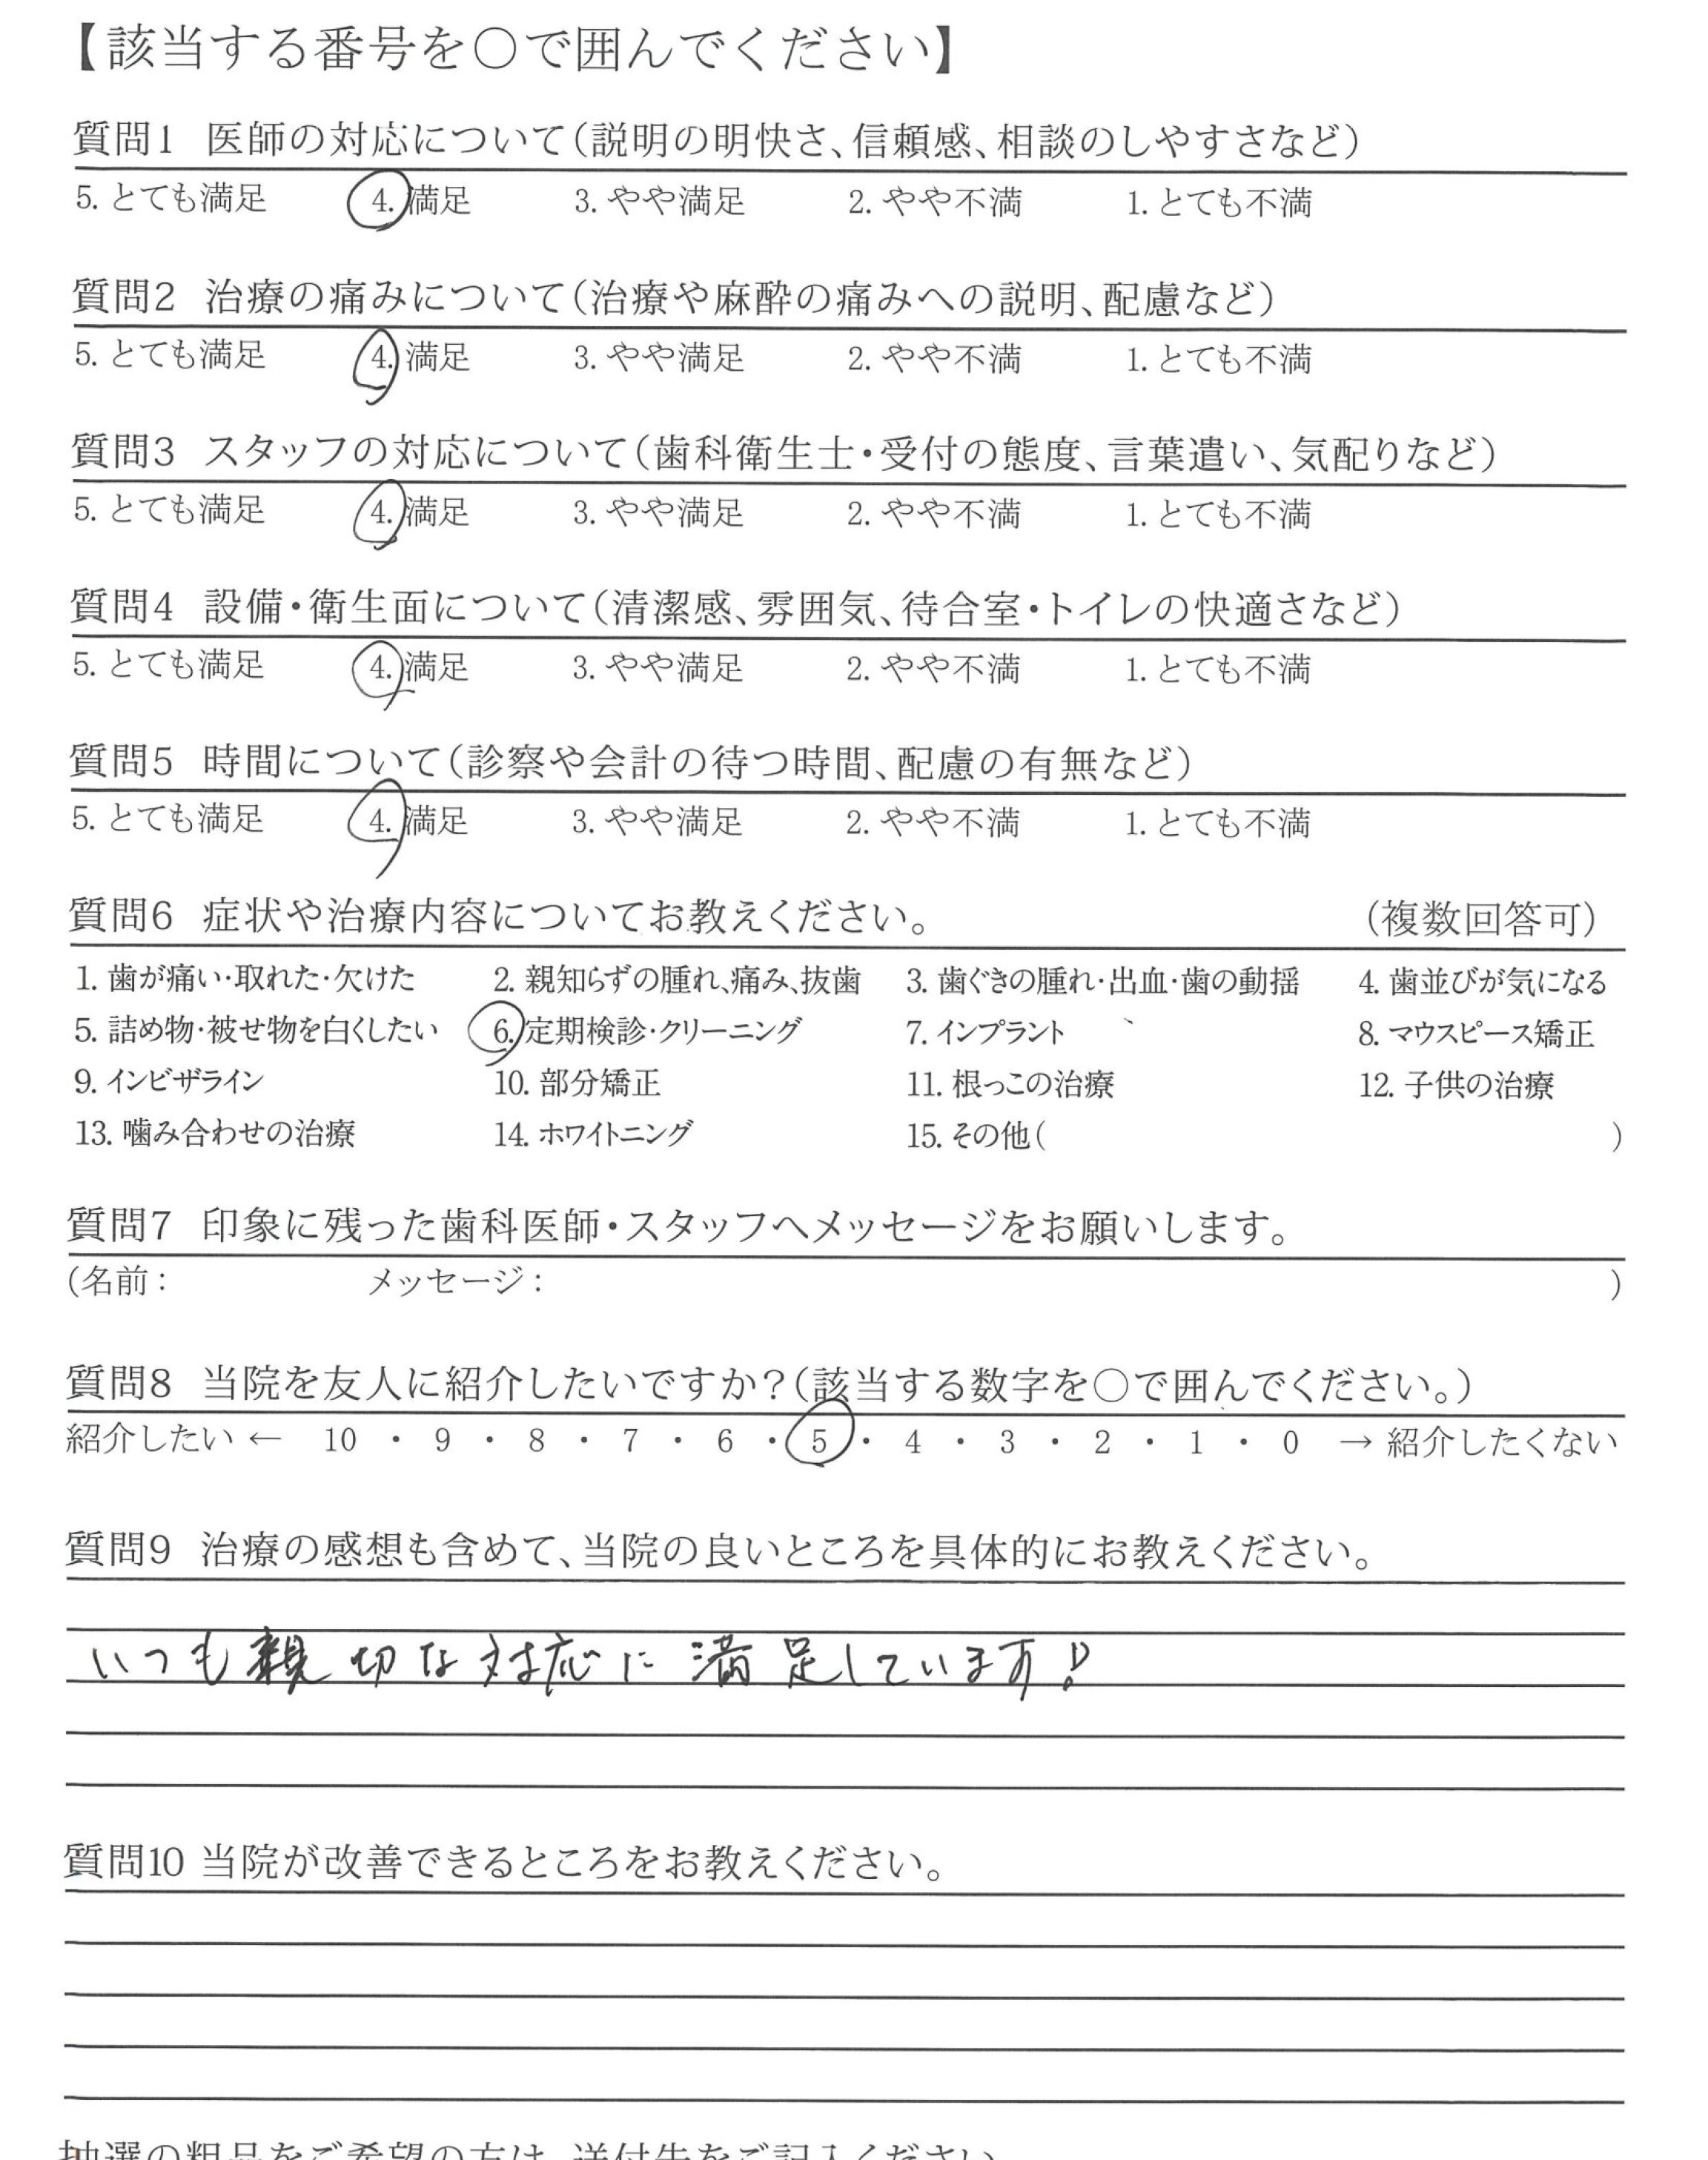 【該当する番号を○で囲んでください】
質問1 医師の対応について(説明の明快さ、信頼感、相談のしやすさなど)
5. とても満足 4. 満足 3. やや満足 2. やや不満 1. とても不満
質問2 治療の痛みについて(治療や麻酔の痛みへの説明、配慮など)
5. とても満足 4. 満足 3. やや満足 2. やや不満 1. とても不満
質問3 スタッフの対応について(歯科衛生士・受付の態度、言葉遣い、気配りなど)
5. とても満足 4. 満足 3. やや満足 2. やや不満 1. とても不満
質問4 設備・衛生面について(清潔感、雰囲気、待合室・トイレの快適さなど)
5. とても満足 4. 満足 3. やや満足 2. やや不満 1. とても不満
質問5 時間について(診察や会計の待つ時間、配慮の有無など)
5. とても満足 4. 満足 3. やや満足 2. やや不満 1. とても不満
質問6 症状や治療内容についてお教えください。 (複数回答可)
1. 歯が痛い・取れた・欠けた 2. 親知らずの腫れ、痛み、抜歯 3. 歯ぐきの腫れ・出血・歯の動揺 4. 歯並びが気になる
5. 詰め物・被せ物を白くしたい 6. 定期検診・クリーニング 7. インプラント 8. マウスピース矯正
9. インビザライン 10. 部分矯正 11. 根っこの治療 12. 子供の治療
13. 噛み合わせの治療 14. ホワイトニング 15. その他( )
質問7 印象に残った歯科医師・スタッフへメッセージをお願いします。
(名前: メッセージ: )
質問8 当院を友人に紹介したいですか?(該当する数字を○で囲んでください。)
紹介したい ← 10 ・ 9 ・ 8 ・ 7 ・ 6 ・ 5 ・ 4 ・ 3 ・ 2 ・ 1 ・ 0 → 紹介したくない
質問9 治療の感想も含めて、当院の良いところを具体的にお教えください。
いつも親切な対応に満足しています!
質問10 当院が改善できるところをお教えください。
抽選の粗品をご希望の方は、送付先をご記入ください